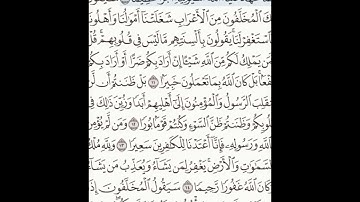 ٱلْمُخَلَّفُونَ مِنَ ٱلْأَعْرَابِ شَغَلَتْنَآ أَمْوَٰلُنَا وَأَهْلُونَ
ٱسْتَغْفِرْ لَنَا يَقُولُونَ بِأَلْسِنَتِهِم مَّا لَيْسَ فِى قُلُوبِهِمْ
مَن يَمْلِكُ لَكُم مِّنَ ٱللَّهِ شَيْـًٔا إِنْ أَرَادَ بِكُمْ ضَرًّا أَوْ أَرَادَ بِكُمْ
فْعًۢا بَلْ كَانَ ٱللَّهُ بِمَا تَعْمَلُونَ خَبِيرًۢا ١١ بَلْ ظَنَنتُمْ أَن
نقَلِبَ ٱلرَّسُولُ وَٱلْمُؤْمِنُونَ إِلَىٰٓ أَهْلِيهِمْ أَبَدًا وَزُيِّنَ ذَٰلِكَ فِى
لُوبِكُمْ وَظَنَنتُمْ ظَنَّ ٱلسَّوْءِ وَكُنتُمْ قَوْمًۢا بُورًا ١٢ وَمَن لَّمْ يُؤْمِ
ٱللَّهِ وَرَسُولِهِۦ فَإِنَّآ أَعْتَدْنَا لِلْكَٰفِرِينَ سَعِيرًا ١٣
ٱلسَّمَٰوَٰتِ وَٱلْأَرْضِ يَغْفِرُ لِمَن يَشَآءُ وَيُعَذِّبُ مَن يَشَآءُ
كَانَ ٱللَّهُ غَفُورًا رَّحِيمًا ١٤ سَيَقُولُ ٱلْمُخَلَّفُونَ إِذَا